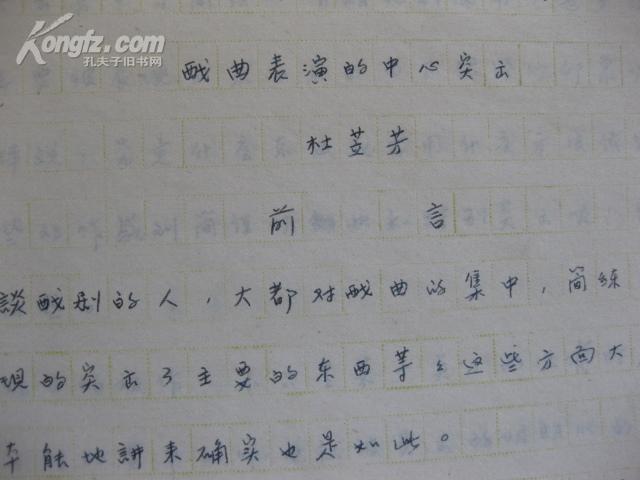 Kongfz.com
孔夫子旧书网
戏曲表演的中心突出
杜芝芳
前言
談戏剧的人，大都对戏曲的集中，简练
现的突出了主要的东西等々这些方面大
能地讲来确实也是如此。